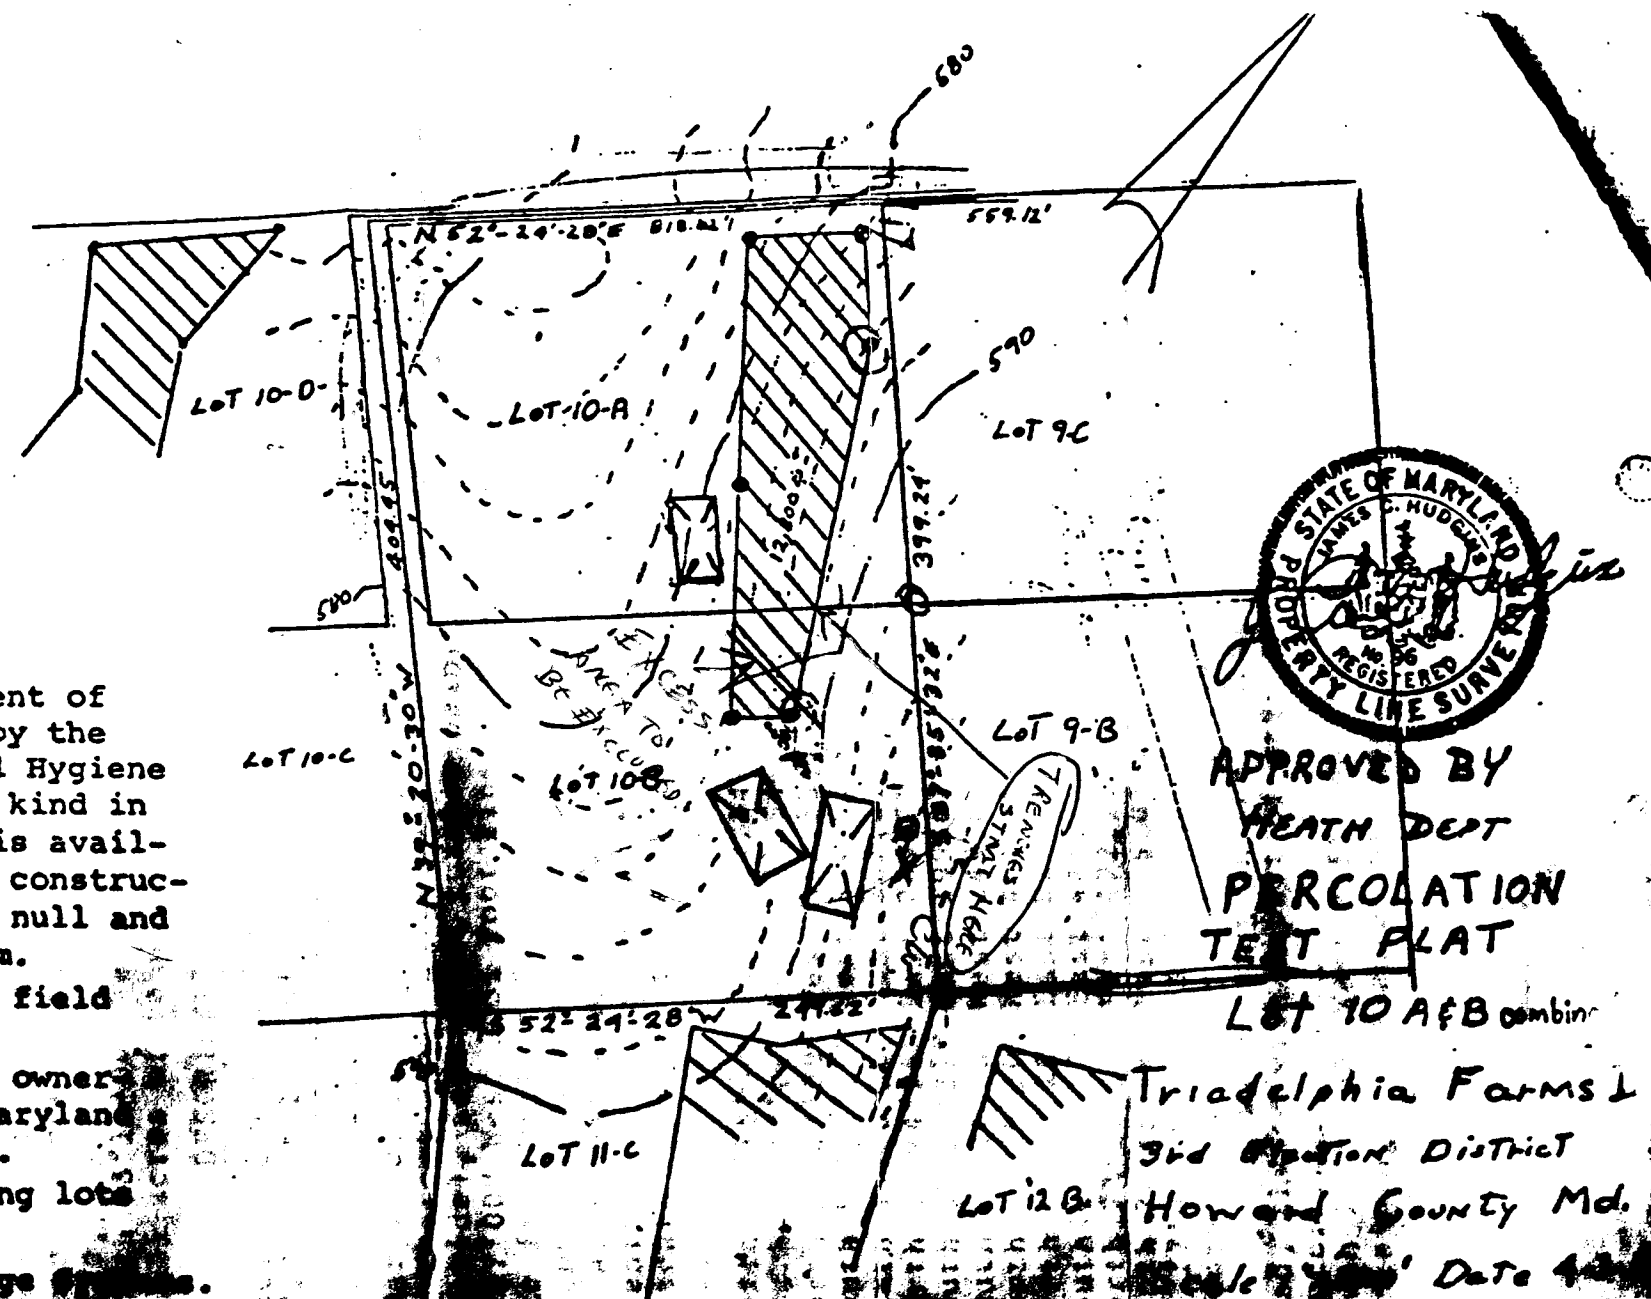 680
N 52°-24'-28"E 818.62'
559.12'
590
LOT 10-D
LOT-10-A
LOT 9-C
409.45
399.24'
580
STATE OF MARYLAND
JAMES C. HUDGINS
No. 56
REGISTERED
PROPERTY LINE SURVEYOR
EXCESS
AREA TO
BE EXCLUDED
ent of
by the
l Hygiene
kind in
is avail-
construc-
null and
n.
field
owner-
aryland
.
ng lots
ge
LOT 10-C
LOT 10-B
LOT 9-B
TRENCHES
STMT HERE
APPROVED BY
HEATH DEPT
PERCOLATION
TEST PLAT
Lot 10 A&B combin
S 52°-24'-28"W 241.62'
LOT 11-C
LOT 12 B
Triadelphia Farms I
3rd Election District
Howard County Md.
Scale Date 4-